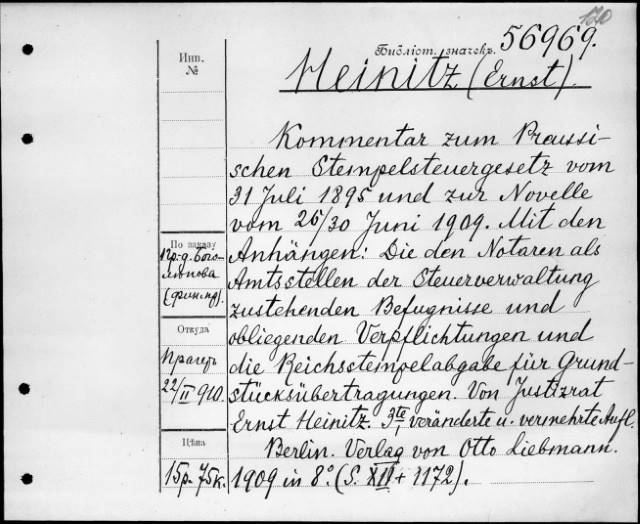 Библіот. значекъ. 56969.
Инв.
№
Heinitz (Ernst).
Kommentar zum Preussi-
schen Stempelsteuergesetz vom
31 Juli 1895 und zur Novelle
vom 26/30 Juni 1909. Mit den
Anhängen: Die den Notaren als
Amtsstellen der Steuerverwaltung
zustehenden Befugnisse und
obliegenden Verpflichtungen und
die Reichsstempelabgabe für Grund-
stücksübertragungen. Von Justizrat
Ernst Heinitz. 3te, veränderte u. vermehrte Aufl.
Berlin. Verlag von Otto Liebmann.
1909 in 8°. (S. XII + 1172).
По заказу
Пр-д. Бого-
лѣпова
Откуда
Прагеръ
22/II 910.
Цѣна
15р. 75к.